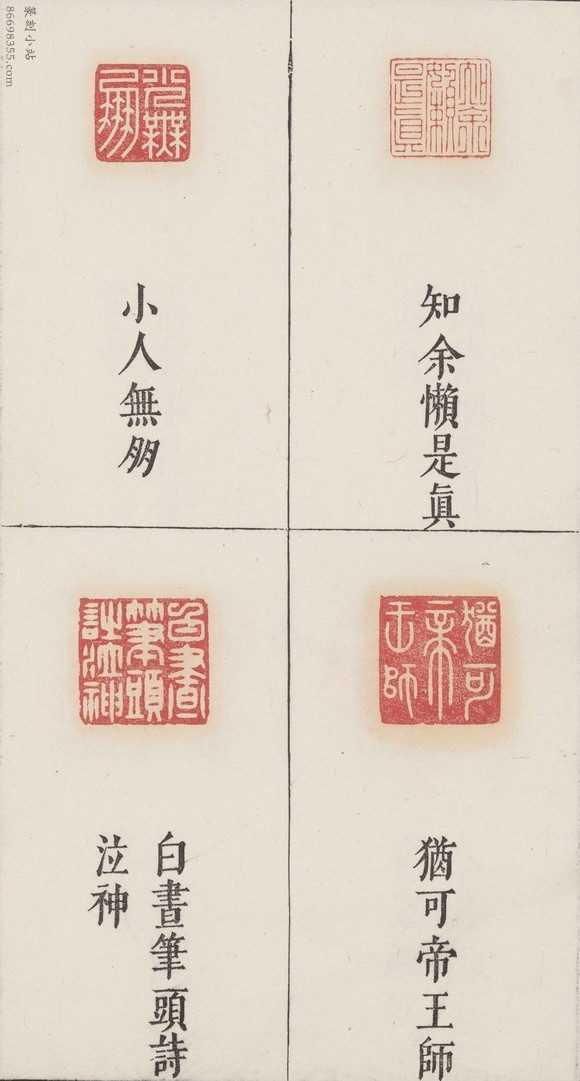 篆刻小站
86698355.com
知余懶是眞
小人無朋
猶可帝王師
白晝筆頭詩
泣神